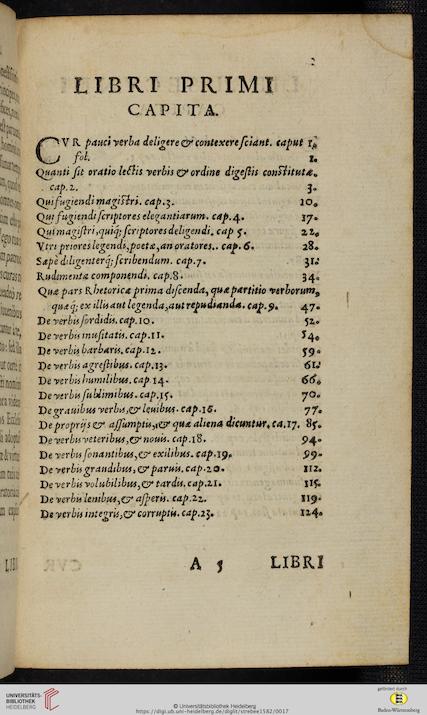 LIBRI PRIMI
CAPITA.
CVR pauci verba deligere & contexere sciant. caput 1.
fol. 1.
Quanti sit oratio lectis verbis & ordine digestis constitutæ.
cap. 2. 3.
Qui fugiendi magistri. cap. 3. 10.
Qui fugiendi scriptores elegantiarum. cap. 4. 17.
Qui magistri, quiq; scriptores deligendi. cap 5. 22.
Vtri priores legendi, poetæ, an oratores.. cap. 6. 28.
Sæpè diligenterq; scribendum. cap. 7. 31.
Rudimenta componendi. cap. 8. 34.
Quæ pars Rhetoricæ prima discenda, quæ partitio verborum,
quæq; ex illis aut legenda, aut repudianda. cap. 9. 47.
De verbis sordidis. cap. 10. 52.
De verbis inusitatis. cap. 11. 54.
De verbis barbaris. cap. 12. 59.
De verbis agrestibus. cap. 13. 61.
De verbis humilibus. cap 14. 66.
De verbis sublimibus. cap. 15. 70.
De grauibus verbis, & leuibus. cap. 16. 77.
De proprijs & assumptis, & quæ aliena dicuntur. ca. 17. 85.
De verbis veteribus, & nouis. cap. 18. 94.
De verbis sonantibus, & exilibus. cap. 19. 99.
De verbis grandibus, & paruis. cap. 20. 112.
De verbis volubilibus, & tardis. cap. 21. 115.
De verbis lenibus, & asperis. cap. 22. 119.
De verbis integris, & corruptis. cap. 23. 124.
A 5 LIBRI
UNIVERSITÄTS-
BIBLIOTHEK
HEIDELBERG
© Universitätsbibliothek Heidelberg
https://digi.ub.uni-heidelberg.de/diglit/strebee1582/0017
gefördert durch
Baden-Württemberg